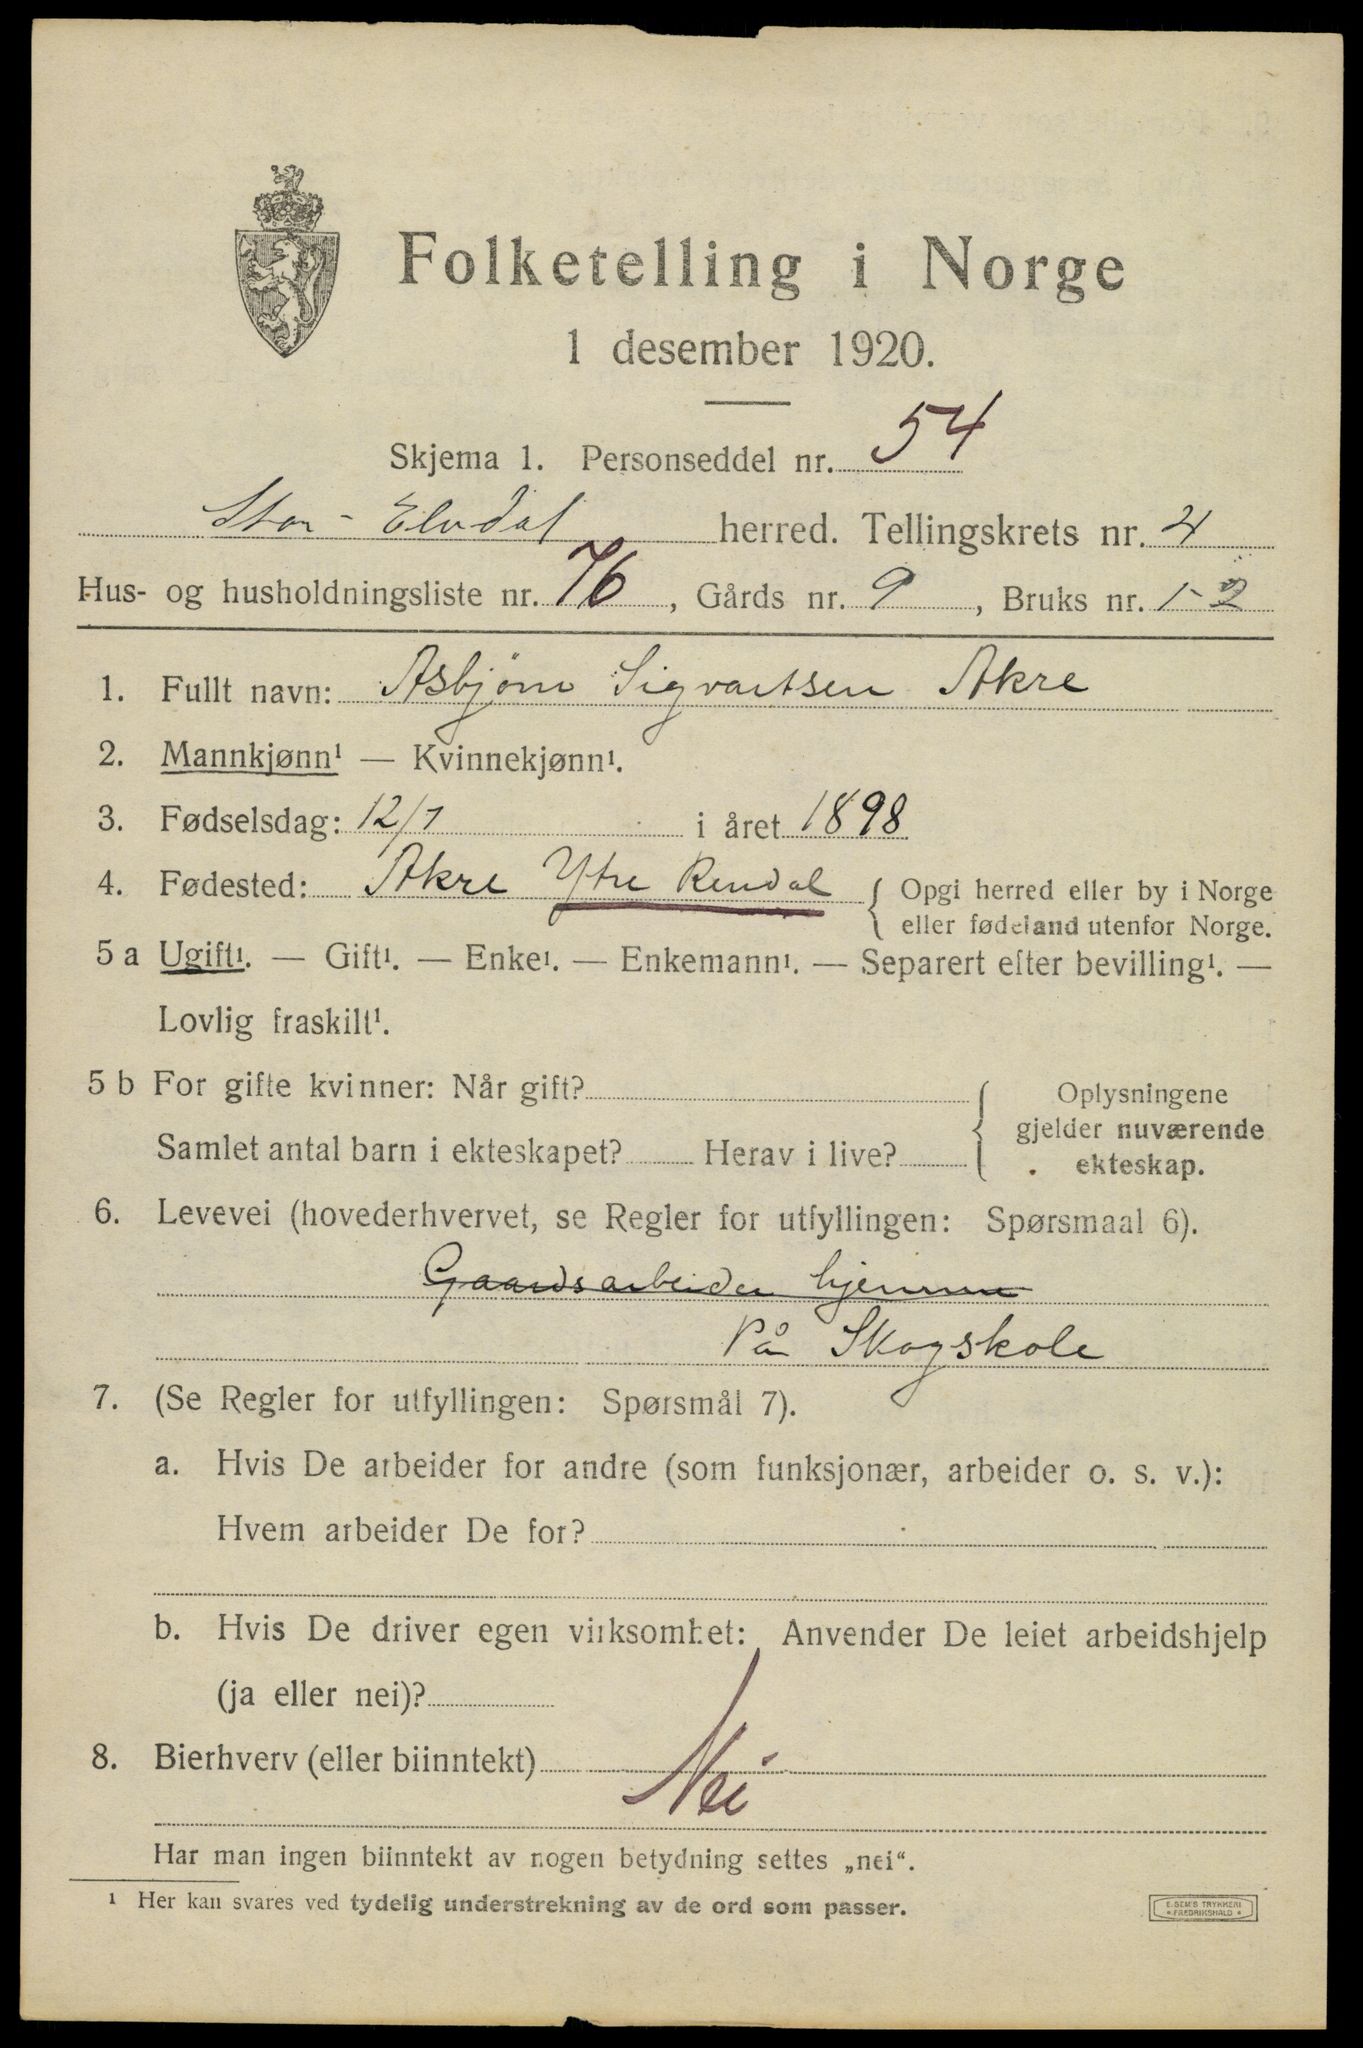 Folketelling i Norge
1 desember 1920.
Skjema 1. Personseddel nr. 54
Stor-Elvdal herred. Tellingskrets nr. 4
Hus- og husholdningsliste nr. 76, Gårds nr. 9, Bruks nr. 1-2
1. Fullt navn: Asbjørn Sigvartsen Akre
2. Mannkjønn¹ — Kvinnekjønn¹.
3. Fødselsdag: 12/7 i året 1898
4. Fødested: Akre Ytre Rendal { Opgi herred eller by i Norge
eller fødeland utenfor Norge.
5 a Ugift¹. — Gift¹. — Enke¹. — Enkemann¹. — Separert efter bevilling¹. —
Lovlig fraskilt¹.
5 b For gifte kvinner: Når gift?
Samlet antal barn i ekteskapet? Herav i live?
Oplysningene
gjelder nuværende
ekteskap.
6. Levevei (hovederhvervet, se Regler for utfyllingen: Spørsmaal 6).
Gaardsarbeider hjemme
På Skogskole
7. (Se Regler for utfyllingen: Spørsmål 7).
a. Hvis De arbeider for andre (som funksjonær, arbeider o. s. v.):
Hvem arbeider De for?
b. Hvis De driver egen virksomhet: Anvender De leiet arbeidshjelp
(ja eller nei)?
8. Bierhverv (eller biinntekt) Nei
Har man ingen biinntekt av nogen betydning settes „nei“.
¹ Her kan svares ved tydelig understrekning av de ord som passer.
E. SEM'S TRYKKERI
FREDRIKSHALD